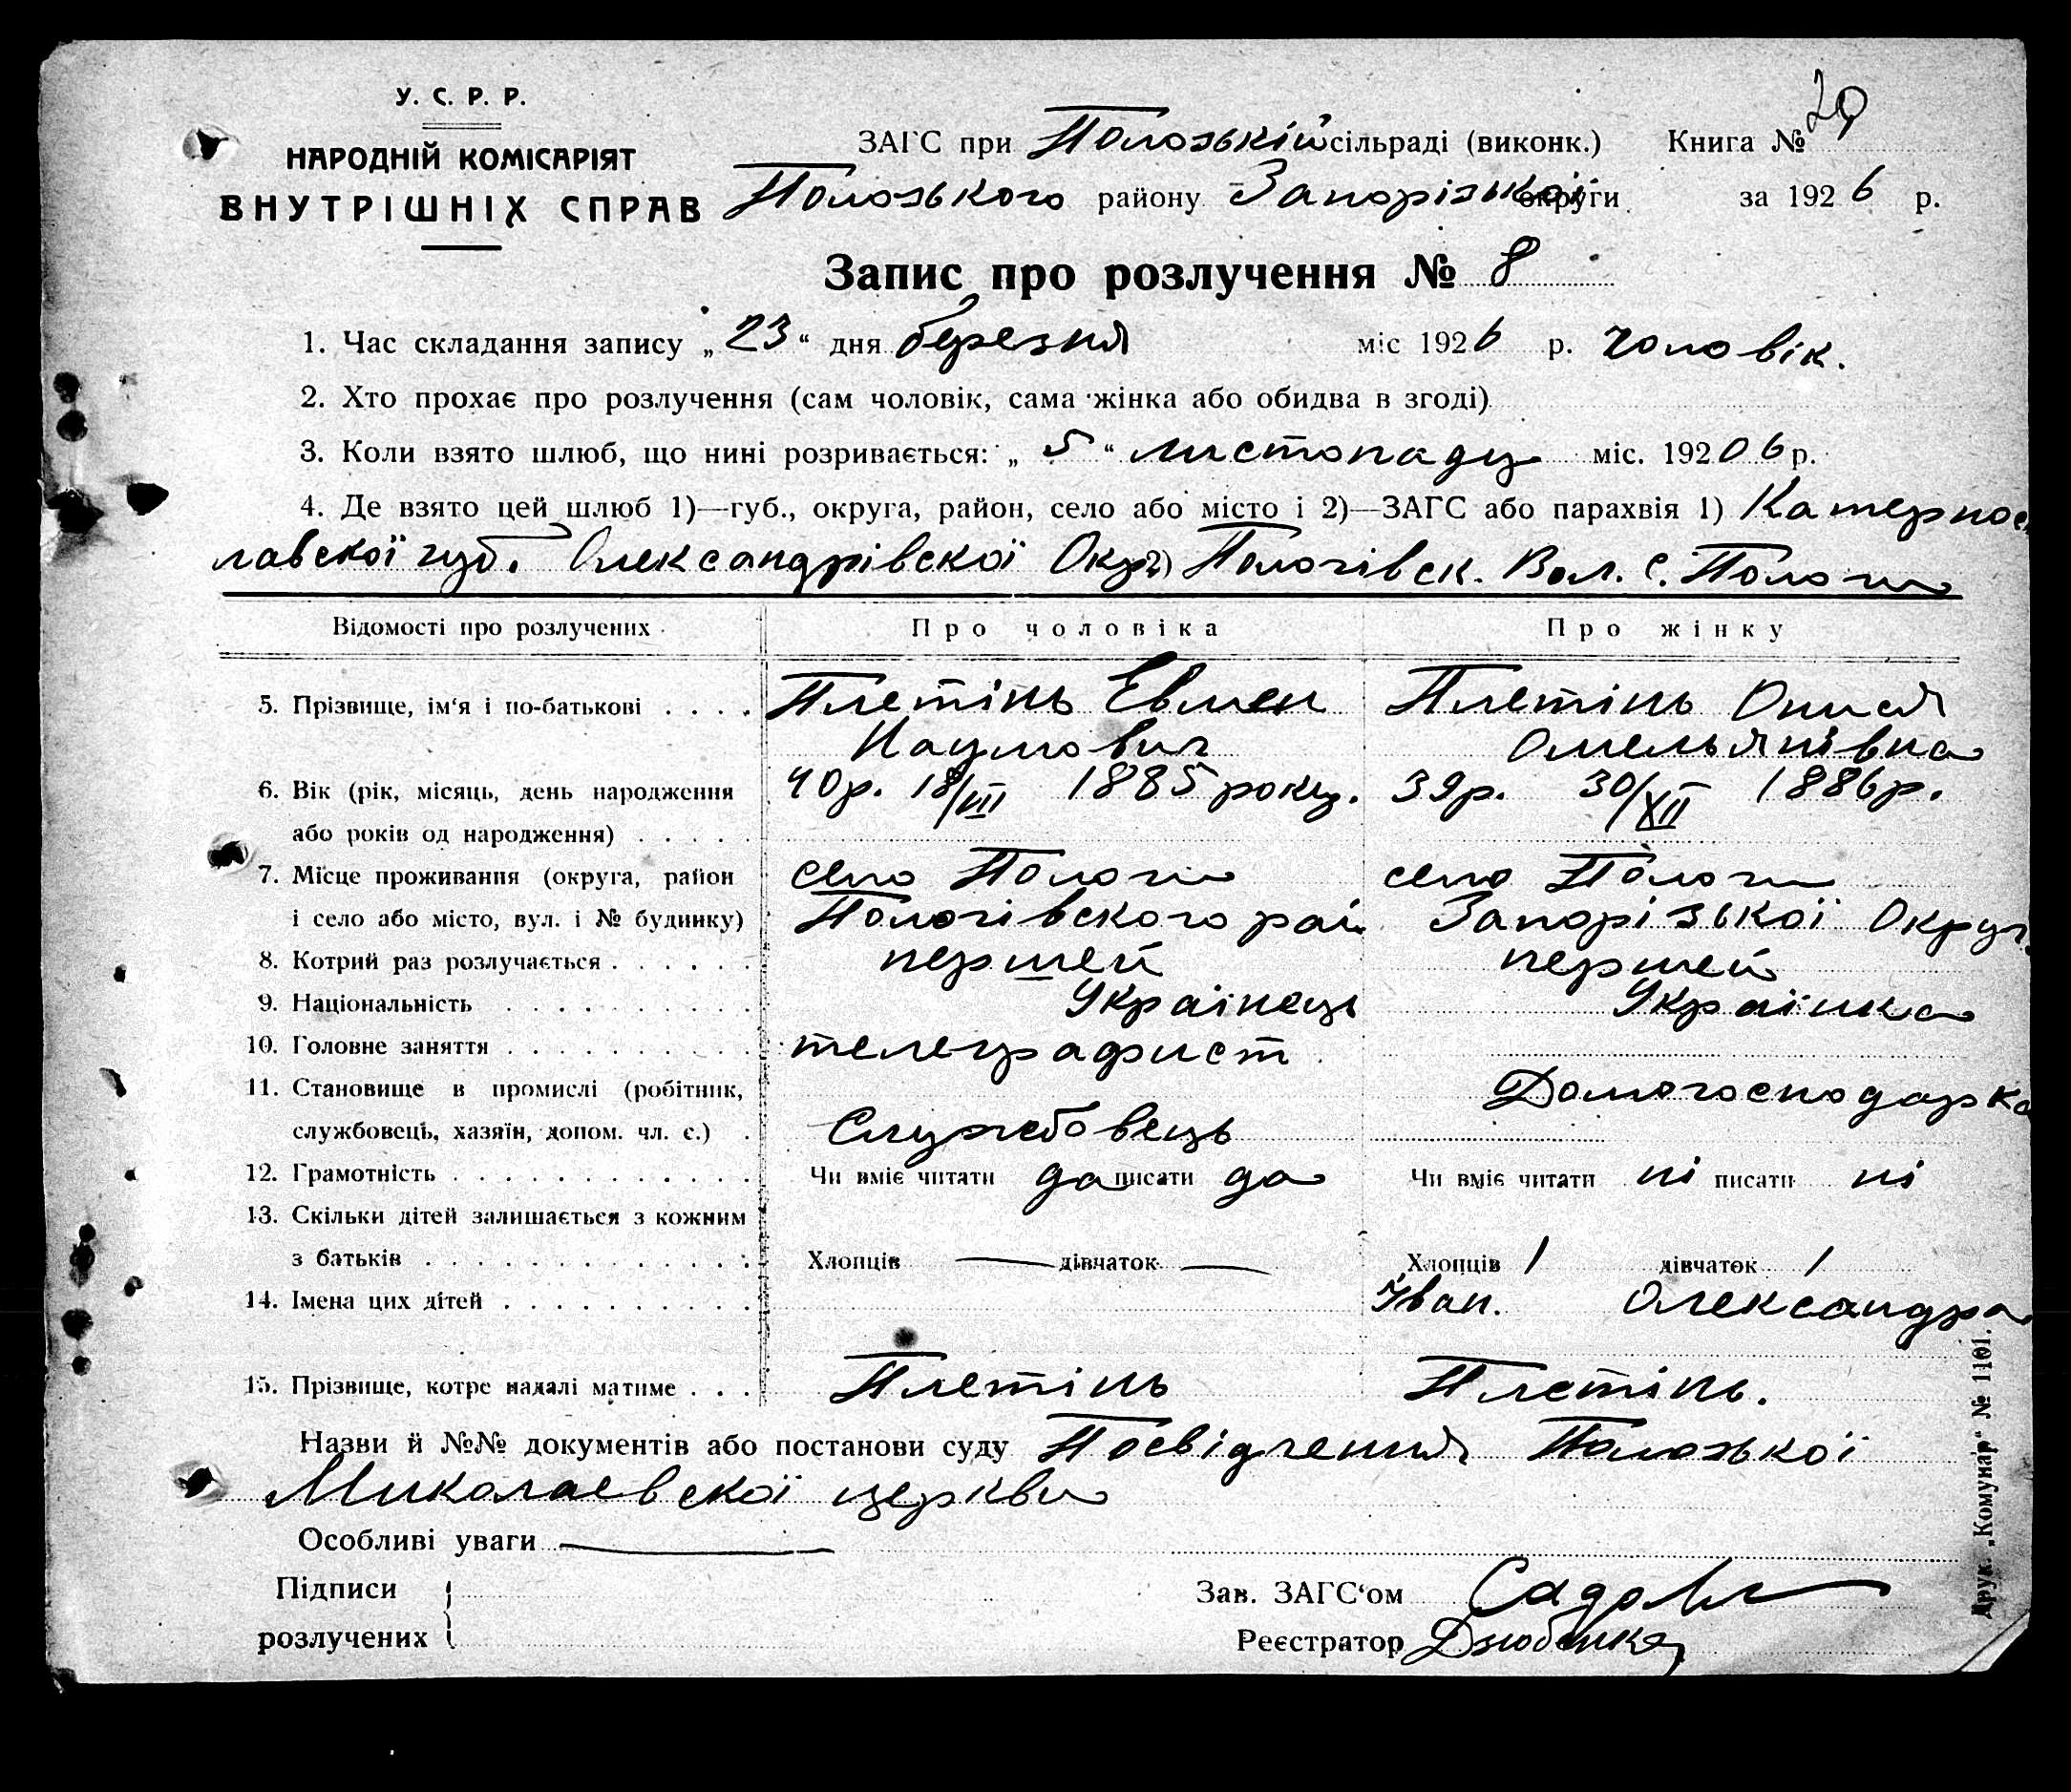 У. С. Р. Р.
НАРОДНІЙ КОМІСАРІЯТ
ВНУТРІШНІХ СПРАВ
ЗАГС при Полозькій сільраді (виконк.) Книга №
Полозького району Запорізької округи за 1926 р.
Запис про розлучення № 8
1. Час складання запису „23“ дня березня міс 1926 р. чоловік.
2. Хто прохає про розлучення (сам чоловік, сама жінка або обидва в згоді)
3. Коли взято шлюб, що нині розривається: „5“ листопаду міс. 19206 р.
4. Де взято цей шлюб 1)—губ., округа, район, село або місто і 2)—ЗАГС або парахвія 1) Катеринос
лавскої губ. Олександрівскої Окр 2) Пологівск. Вол. с. Пологи
Відомості про розлучених Про чоловіка Про жінку
5. Прізвище, ім'я і по-батькові . . . . Плетінь Евмен Плетінь Онися
Наумович Омельянівна
6. Вік (рік, місяць, день народження 40р. 18/VIII 1885 року. 39р. 30/XII 1886р.
або років од народження) . . . . .
7. Місце проживання (округа, район село Пологи село Пологи
і село або місто, вул. і № будинку) Пологівского рай. Запорізької Округ
8. Котрий раз розлучається . . . . . . першей першей
9. Національність . . . . . . . . . . Українець Українка
10. Головне заняття . . . . . . . . . . телеграфист
11. Становище в промислі (робітник, Домогосподарка
службовець, хазяїн, допом. чл. с.) . Службовець
12. Грамотність . . . . . . . . . . . . Чи вміє читати да писати да Чи вміє читати ні писати ні
13. Скільки дітей залишається з кожним
з батьків . . . . . . . . . . . . . Хлопців — дівчаток — Хлопців 1 дівчаток 1
14. Імена цих дітей . . . . . . . . . . Іван. Олександра
15. Прізвище, котре надалі матиме . . . Плетінь Плетінь.
Назви й №№ документів або постанови суду Посвідчення Полозької
Миколаевскої церкви
Особливі уваги —
Підписи Зав. ЗАГС'ом
розлучених Реєстратор Дзюбенко
Друк. „Комунар“ № 1101.